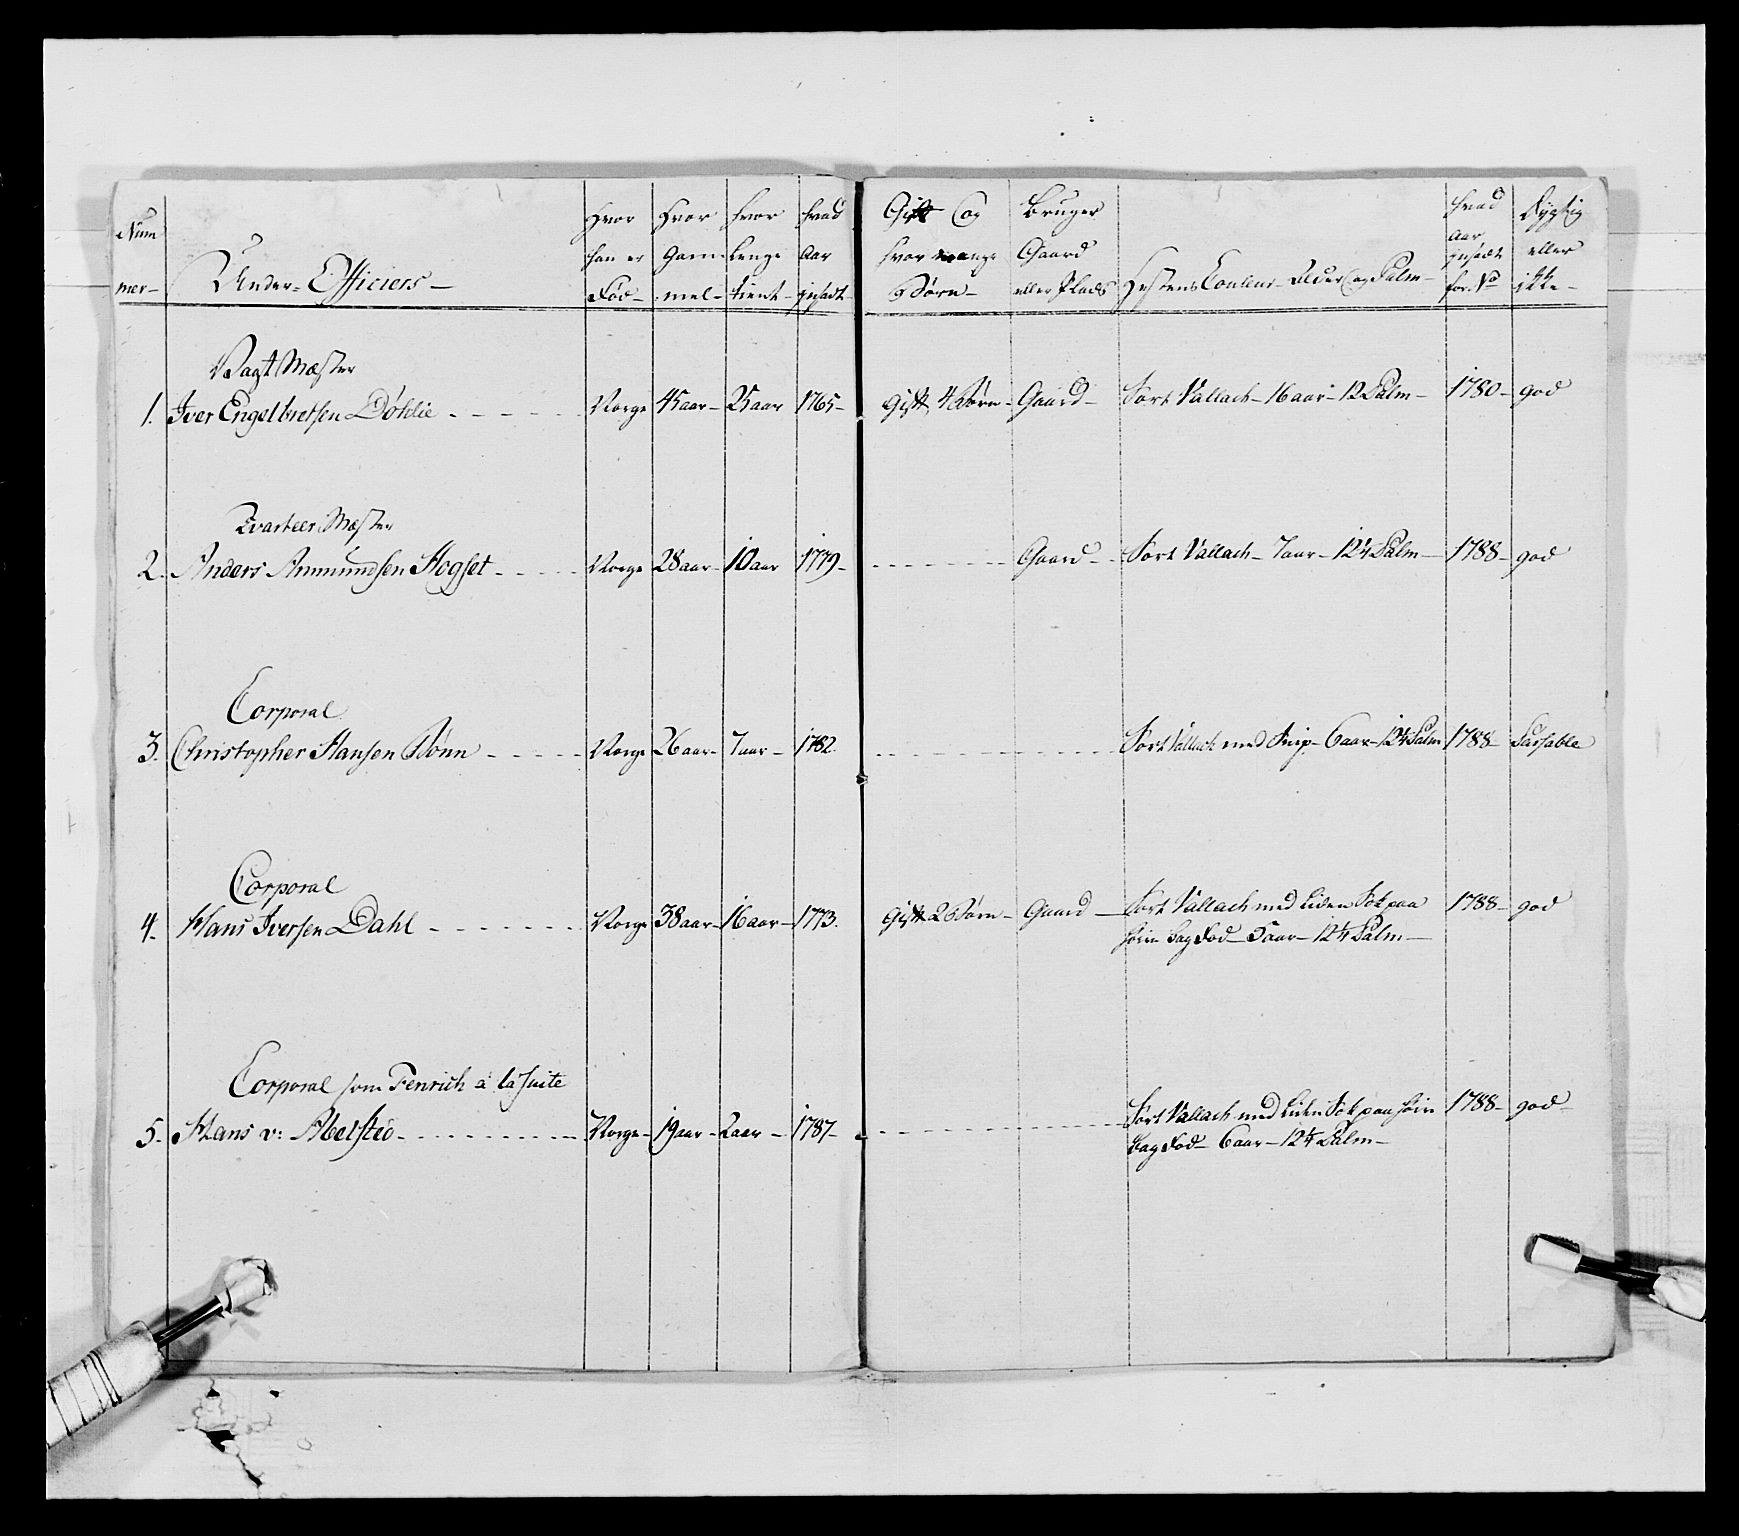 Num
mer-
Under-Officiers-
Hvor
han er
Fød-
Hvor
Gam-
mel-
hvor
lenge
tient-
hvad
Aar
indsadt
Gift Og
hvor mange
Børn-
Bruger
Gaard
eller Plads
Hestens Couleur- Alder Og Palm-
hvad
aar
indsadt
for No
dygtig
eller
ikke-
Vagt Mæster
1. Iver Engelbretsen Døhlie - Norge 45 aar- 25 aar 1765- Gift 4 Børn- Gaard- Sort Vallach- 16 aar- 12 Palm- 1780- god
Qvarteer Mæster
2. Anders Ammundsen Hogset - Norge 28 aar- 10 aar 1779- Gaard- Sort Vallach- 7 aar- 12¼ Palm- 1788- god
Corporal
3. Christopher Hansen Bønn - Norge 26 aar- 7 aar- 1782 Sort Vallach med Snip- 6 aar- 12¼ Palm 1788- Passable
Corporal
4. Hans Iversen Dahl - Norge 38 aar- 16 aar- 1773. Gift 2 Børn- Gaard- Sort Vallach med liden Sok paa 1788- god
høire bag Fod- 5 aar- 12¼ Palm-
Corporal som Fenrich a la suite
5. Hans v: Abelsted - Norge- 19 aar- 2 aar- 1787- Sort Vallach med liden Sok paa høire 1788- god-
bag Fod- 6 aar- 12¼ Palm-